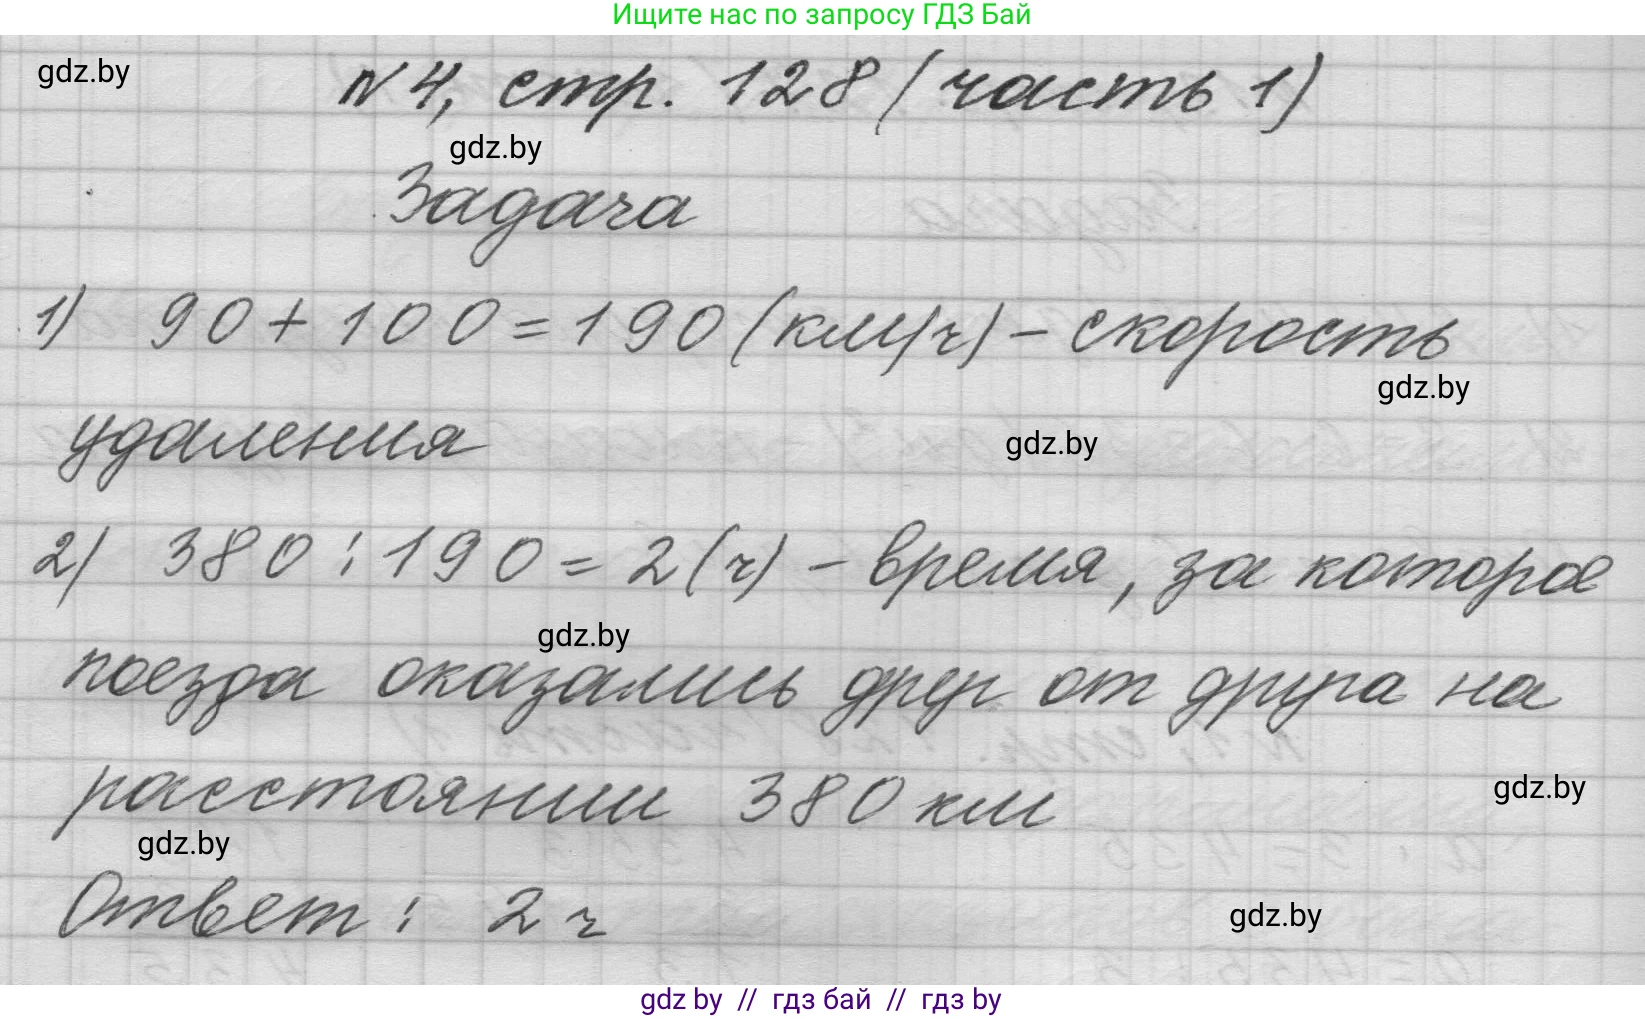 Ищите нас по запросу ГДЗ Бай
gdz.by
№4, стр. 128 (часть 1)
gdz.by
Задача
1) 90+100=190 (км/ч) - скорость
gdz.by
удаления
gdz.by
2) 380:190=2(ч) - время, за которое
gdz.by
поезда оказались друг от друга на
расстоянии 380 км
gdz.by
gdz.by
Ответ: 2 ч
gdz.by
gdz by // гдз бай // гдз by